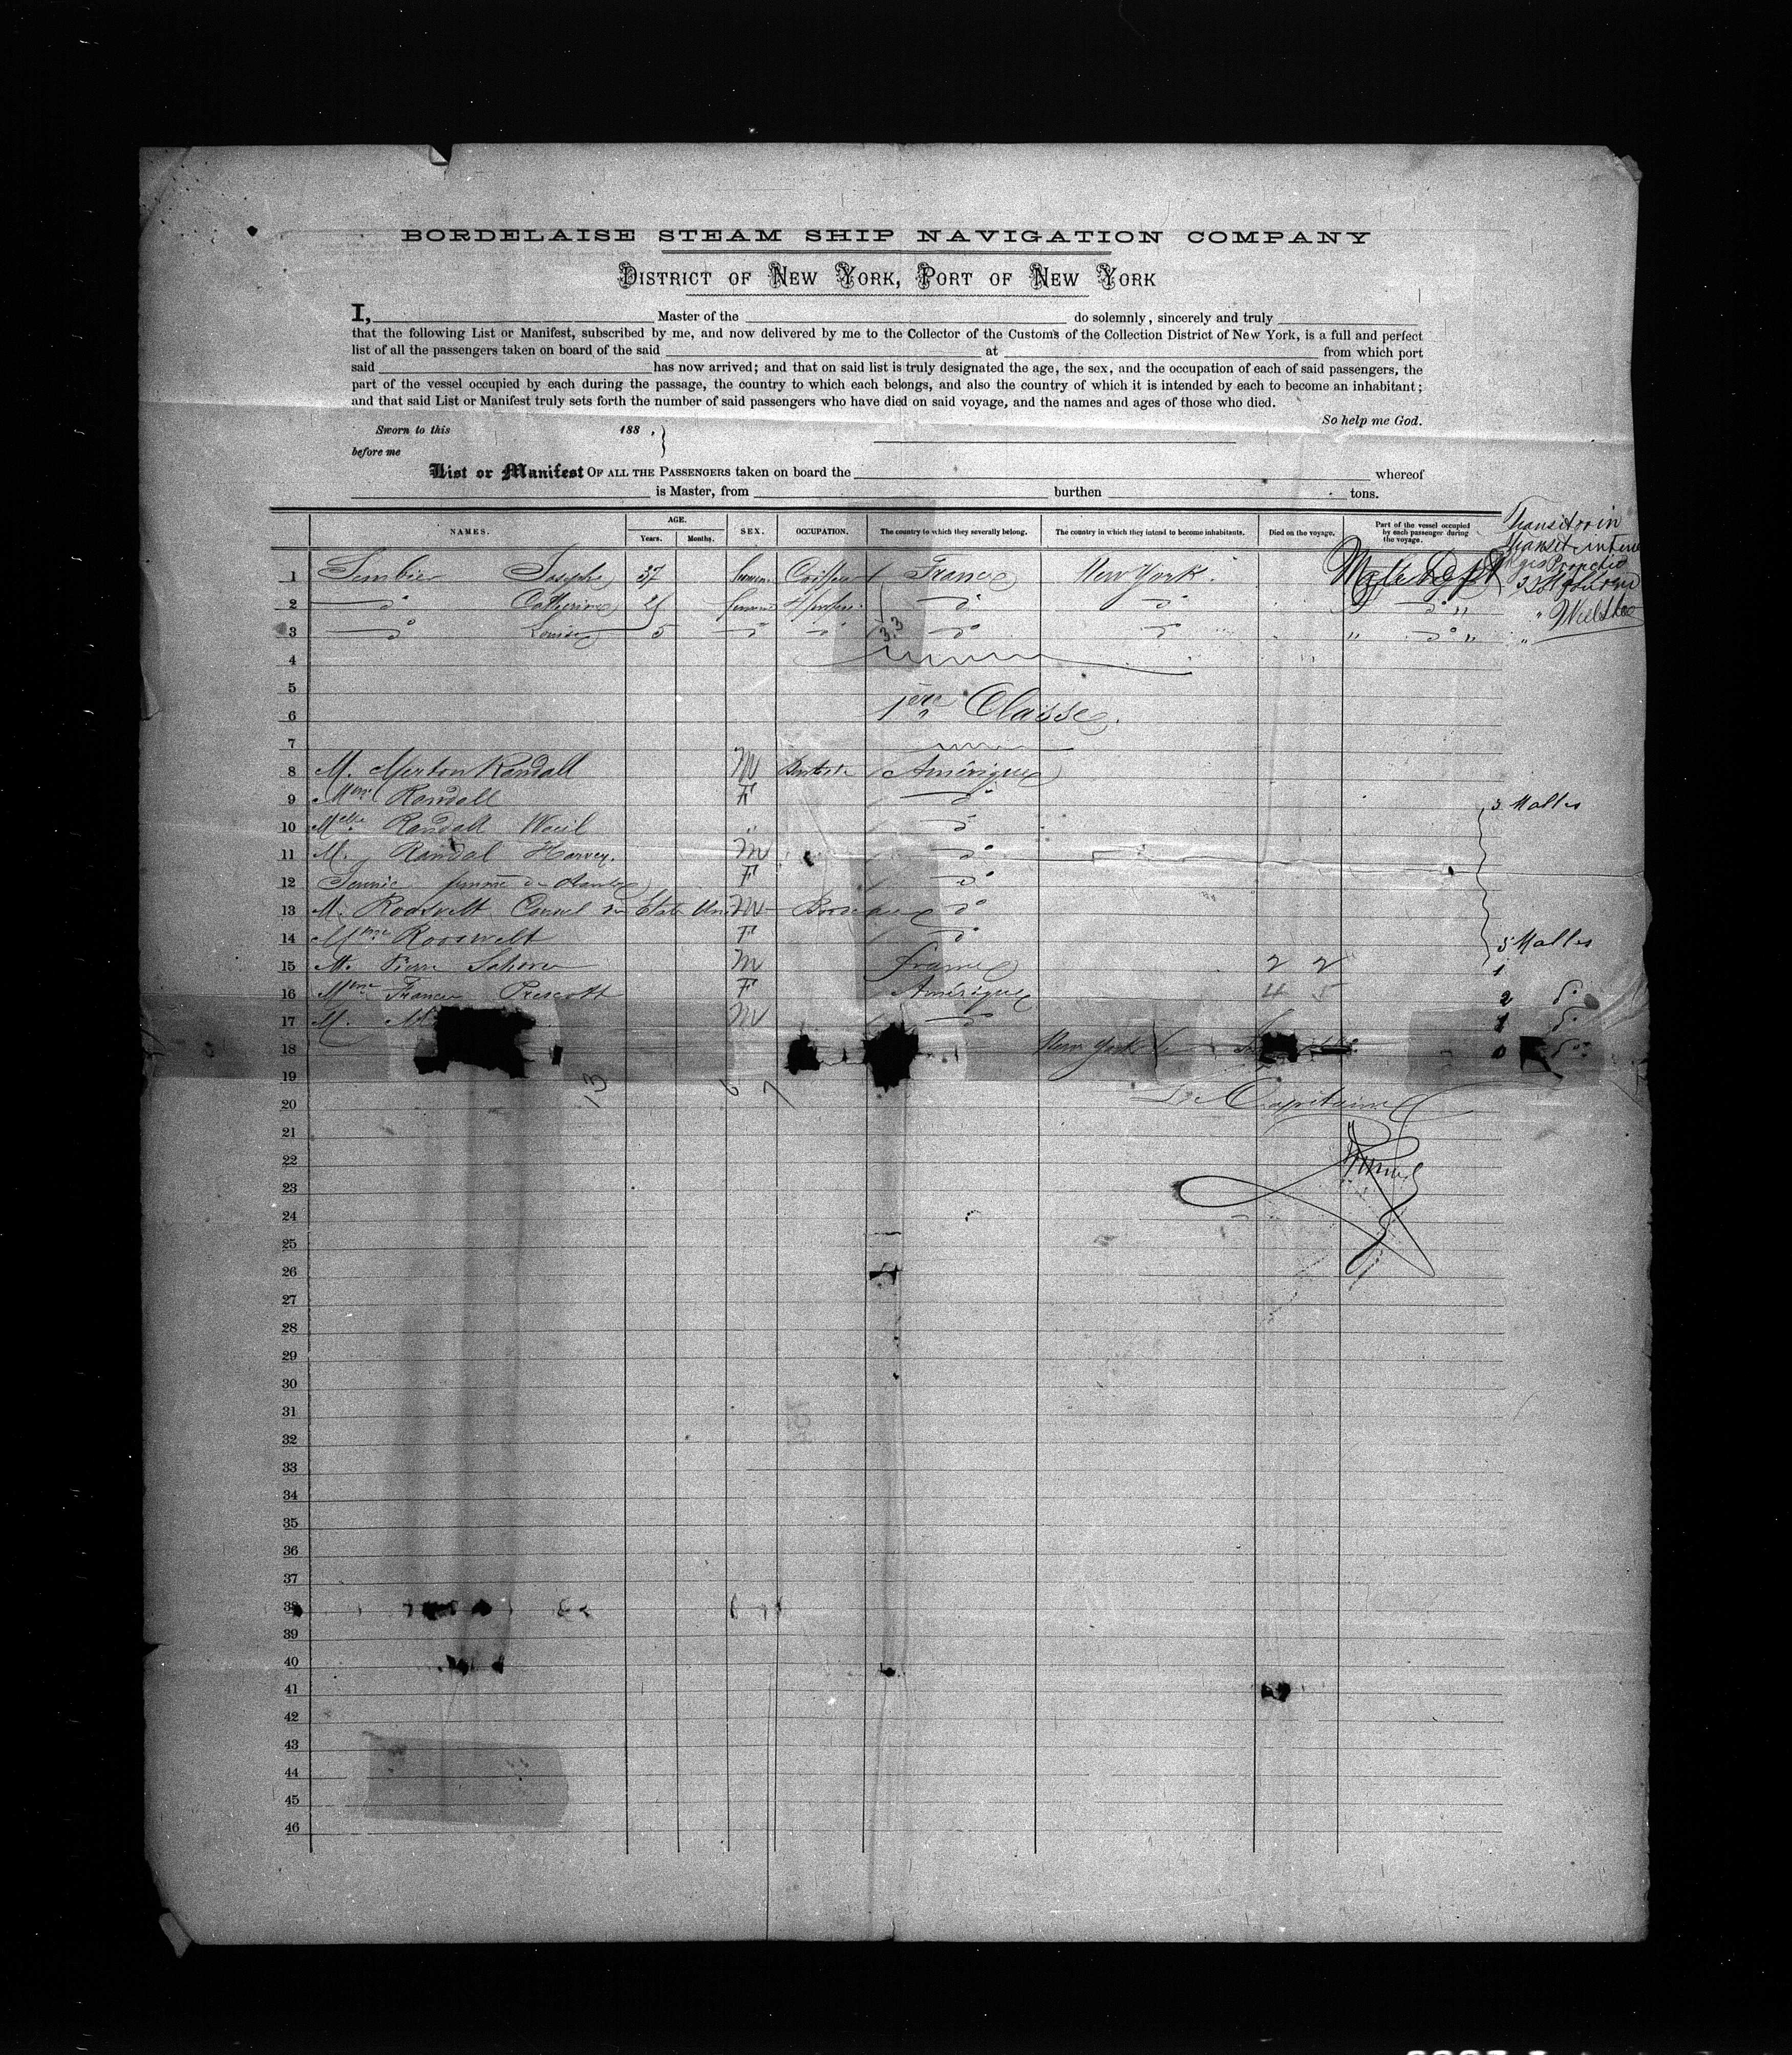 BORDELAISE STEAM SHIP NAVIGATION COMPANY
DISTRICT OF NEW YORK, PORT OF NEW YORK
I, Master of the do solemnly, sincerely and truly
that the following List or Manifest, subscribed by me, and now delivered by me to the Collector of the Customs of the Collection District of New York, is a full and perfect
list of all the passengers taken on board of the said at from which port
said has now arrived; and that on said list is truly designated the age, the sex, and the occupation of each of said passengers, the
part of the vessel occupied by each during the passage, the country to which each belongs, and also the country of which it is intended by each to become an inhabitant;
and that said List or Manifest truly sets forth the number of said passengers who have died on said voyage, and the names and ages of those who died.
So help me God.
Sworn to this 188 . }
before me
List or Manifest OF ALL THE PASSENGERS taken on board the whereof
is Master, from burthen tons.
NAMES. AGE. Years. Months. SEX. OCCUPATION. The country to which they severally belong. The country in which they intend to become inhabitants. Died on the voyage. Part of the vessel occupied by each passenger during the voyage.
1 Joseph 37 Coiffeur France New York.
2 d° Catherine d° d° d°
3 d° Louise 5 d° d° d° d° d°
4
5
6 1ère Classe.
7
8 M. Merton Randall M Amérique
9 Mme Randall F d° 3 Malles
10 Melle Randall d°
11 M. Randal Harvey. M d°
12 Jennie femme de F d°
13 M. Roosvelt Consul Etats Unis M Bordeaux d°
14 Mme Rooswelt F d° 5 Malles
15 M. Pierre M France 2 2 1
16 Mme Prescott F Amérique 4 5 2 d°
17 M. M d° 1 d°
18 New York
19 13 6 7
20 Le Capitaine
21
22
23
24
25
26
27
28
29
30
31
32
33
34
35
36
37
38
39
40
41
42
43
44
45
46